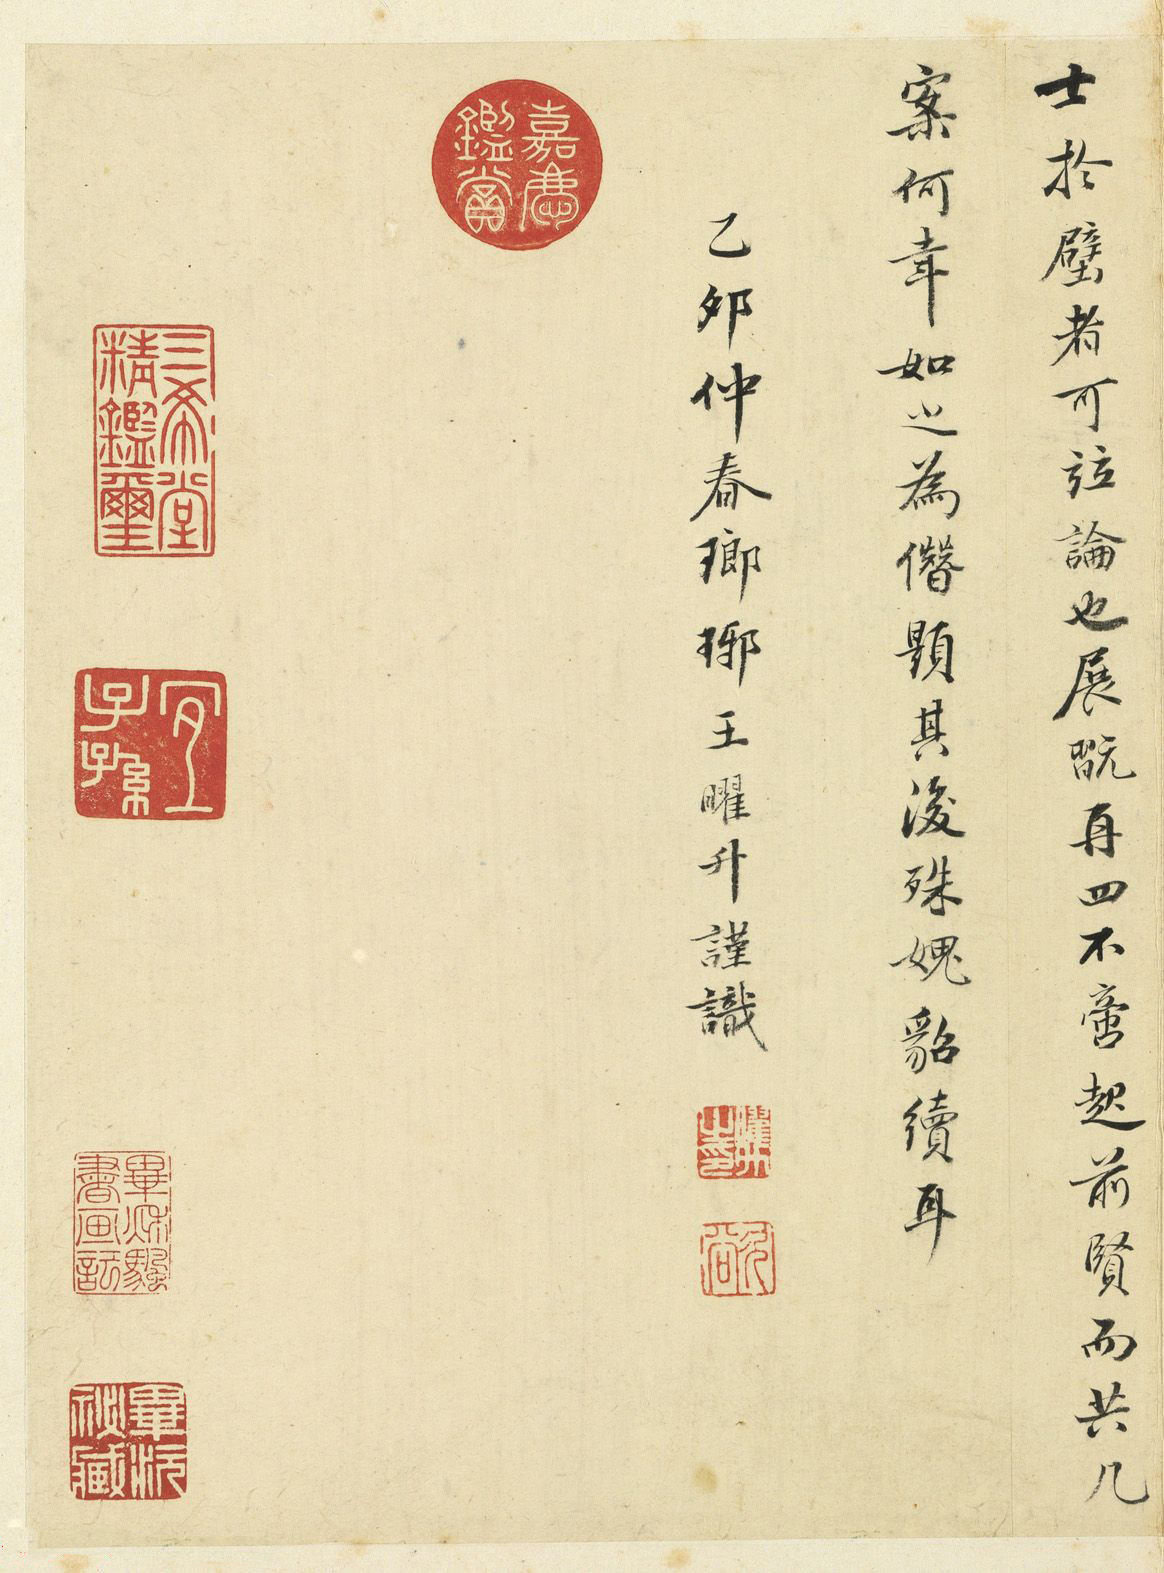 士於壁者可竝論也展翫再四不啻起前賢而共几
案何幸如之為僭題其後殊媿貂續耳
乙卯仲春瑯琊王曜升謹識
嘉慶鑑賞
三希堂精鑑璽
宜子孫
畢秋驄書画記
畢沅秘藏